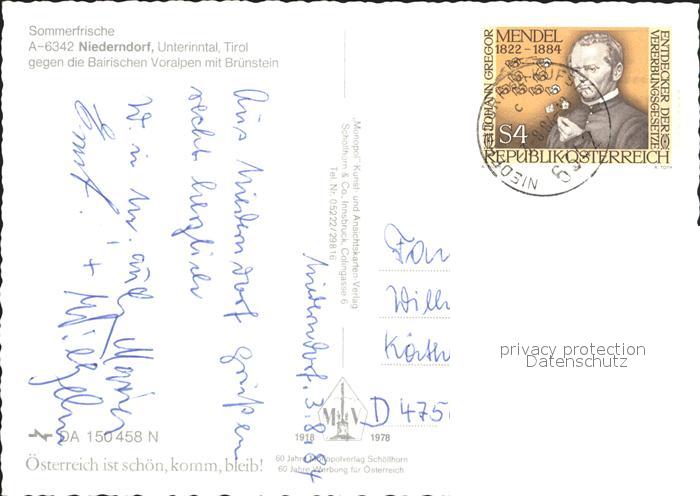 Sommerfrische
A-6342 Niederndorf, Unterinntal, Tirol
gegen die Bairischen Voralpen mit Brünstein
JOHANN GREGOR
MENDEL
1822 - 1884
ENTDECKER DER
VERERBUNGSGESETZE
S4
REPUBLIK ÖSTERREICH
Niederndorf, 3.8.84
Aus Niederndorf grüßen
recht herzlich
Ernst + Wilhelm
"Monopol" Kunst- und Ansichtskarten-Verlag
Schöllhorn & Co., Innsbruck, Colingasse 6
Tel. Nr. 05222/29816
Fam
Wilh
Käth
D 475
privacy protection
Datenschutz
DA 150 458 N
1918 1978
Österreich ist schön, komm, bleib!
60 Jahre Monopolverlag Schöllhorn
60 Jahre Werbung für Österreich